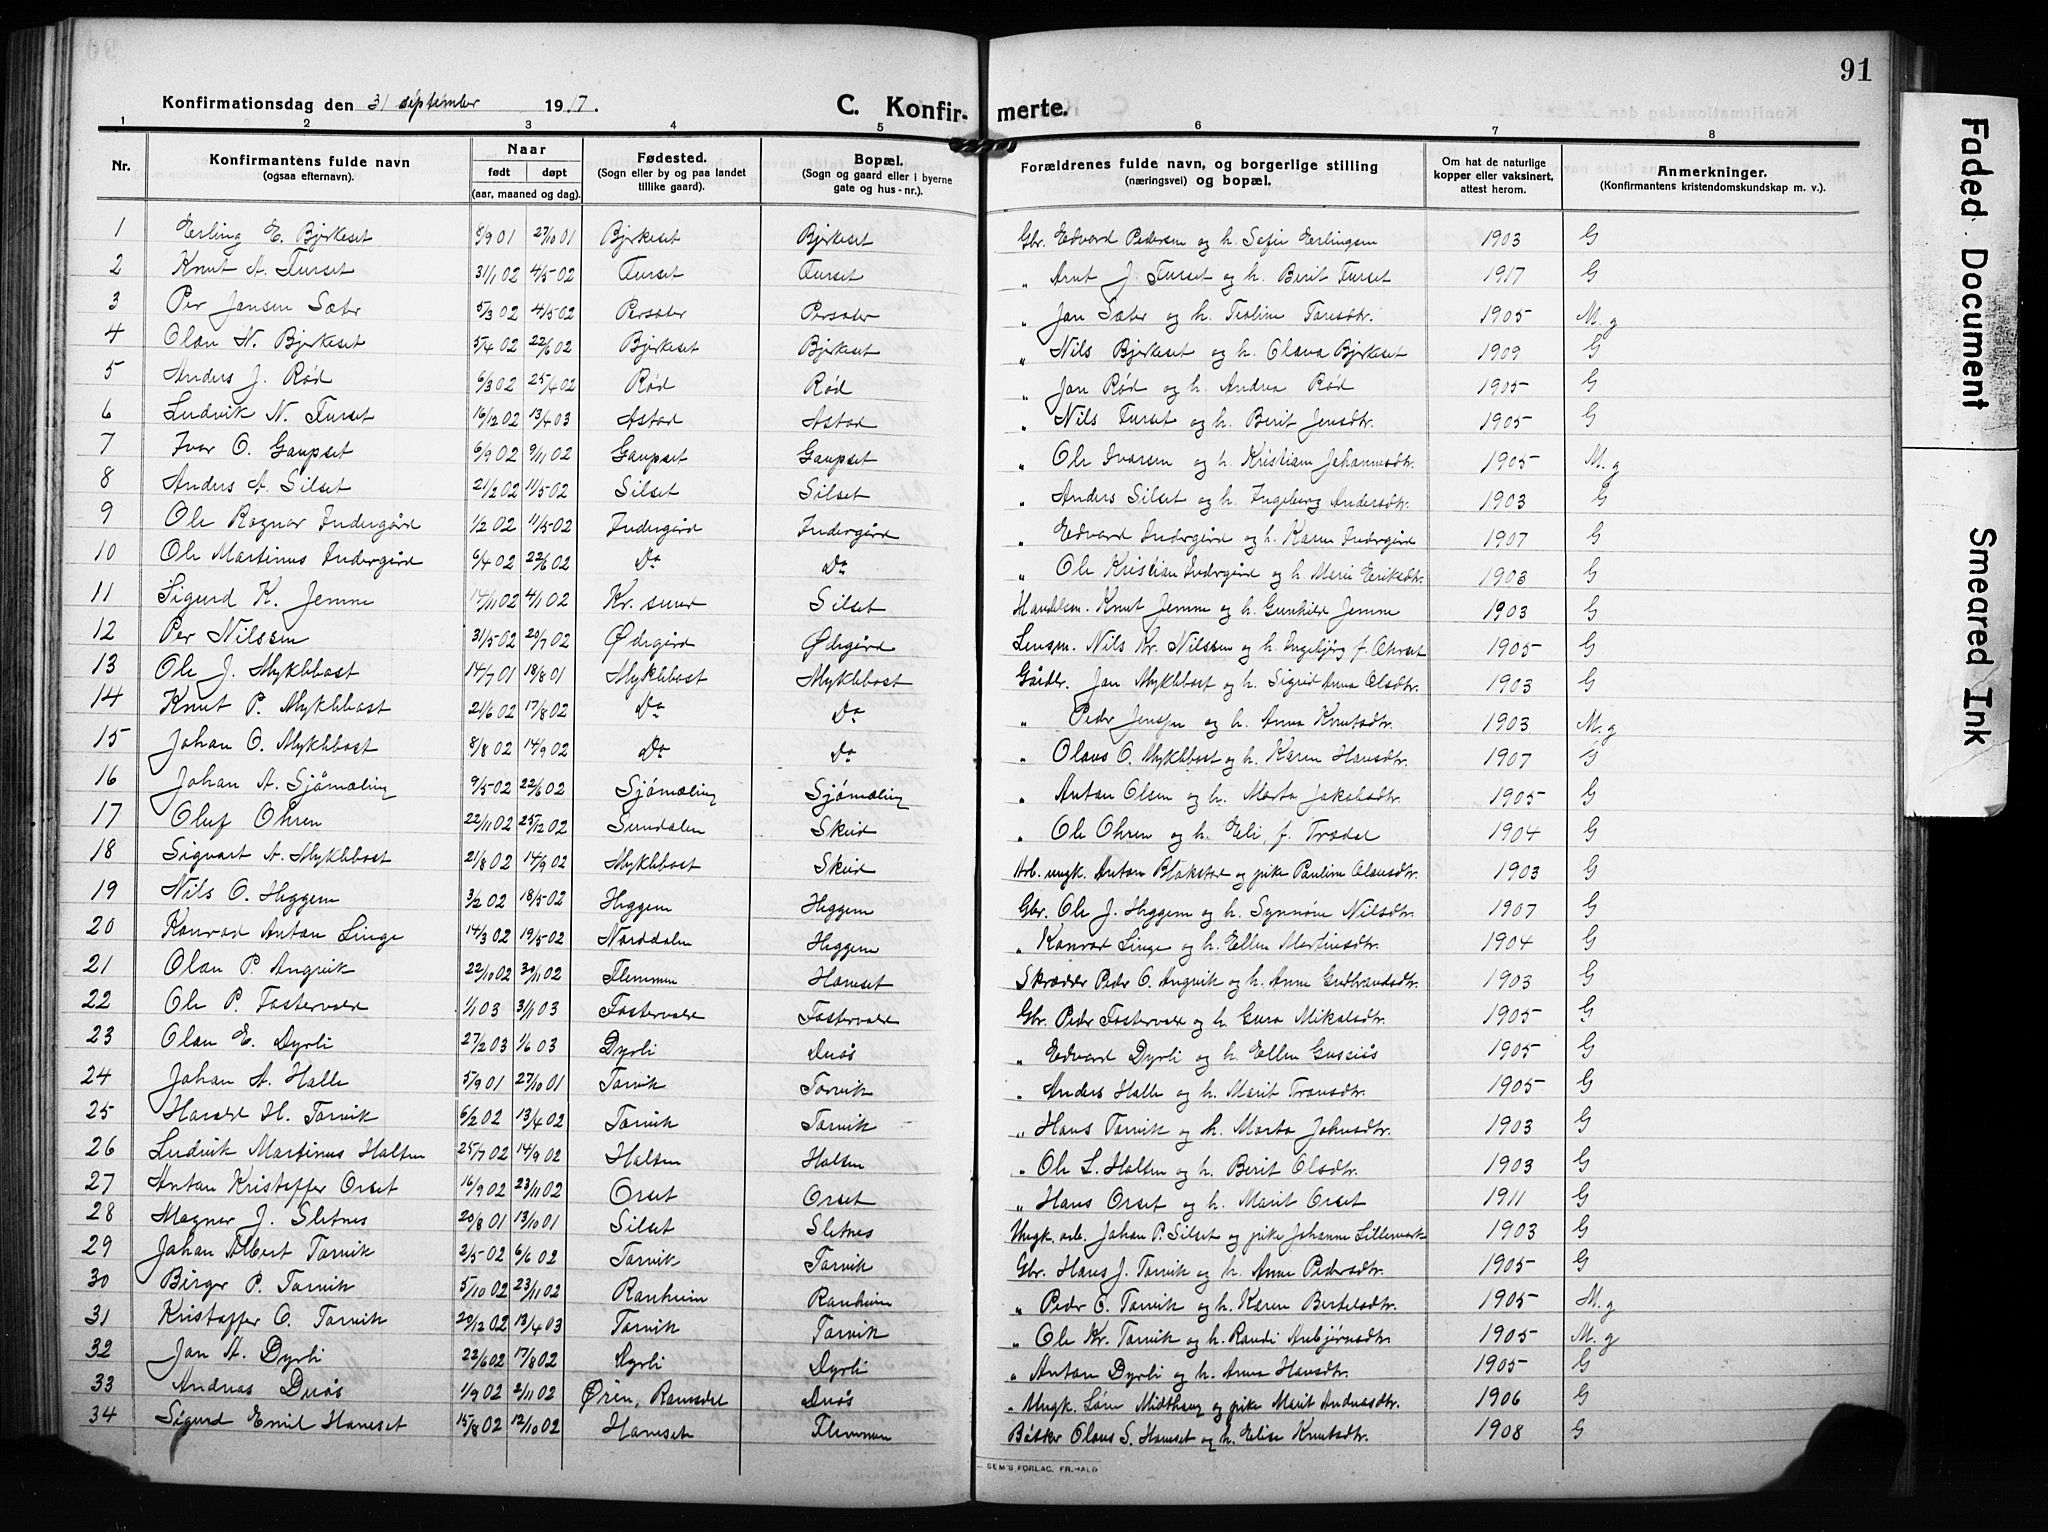 91
Konfirmationsdag den 31 september 1917.
C. Konfirmerte.
1 2 3 4 5 6 7 8
Nr. Konfirmantens fulde navn (ogsaa efternavn). Naar født døpt (aar, maaned og dag). Fødested. (Sogn eller by og paa landet tillike gaard). Bopæl. (Sogn og gaard eller i byerne gate og hus-nr.). Forældrenes fulde navn, og borgerlige stilling (næringsvei) og bopæl. Om hat de naturlige kopper eller vaksinert, attest herom. Anmerkninger. (Konfirmantens kristendomskundskap m. v.).
1 Erling E. Bjerkeset 8/9 01 27/10 01 Bjerkeset Bjerkeset Gbr. Edvard Pedersen og h. Sofie Erlingsen 1903 G
2 Knut A. Furset 31/1 02 4/5 02 Furset Furset " Arnt J. Furset og h. Berit Furset 1917 G
3 Per Jansen Sæter 5/3 02 4/5 02 Persæter Persæter " Jan Sæter og h. 1905 M.g
4 Olav N. Bjerkeset 5/4 02 22/6 02 Bjerkeset Bjerkeset " Nils Bjerkeset og h. Olava Bjerkeset 1909 G
5 Anders J. Rød 6/3 02 25/4 02 Rød Rød " Jan Rød og h. Andrea Rød 1905 G
6 Ludvik N. Furset 16/12 02 13/4 03 Astad Astad " Nils Furset og h. Berit Jensdtr. 1905 G
7 Ivar O. Gaupset 6/9 02 9/11 02 Gaupset Gaupset " Ole Ivarsen og h. Kristiane Johannesdtr. 1905 M.g
8 Anders A. Silset 21/2 02 11/5 02 Silset Silset " Anders Silset og h. Ingeborg Andersdtr. 1903 G
9 Ole Ragnar Indergård 1/2 02 11/5 02 Indergård Indergård " Edvard Indergård og h. Karen Indergård 1907 G
10 Ole Martinus Indergård 6/4 02 22/6 02 Do Do " Ole Kristian Indergård og h. Marie Eriksdtr. 1903 G
11 Sigurd K. Jemne 14/11 02 4/1 02 Kr. sund Silset Handelsm. Knut Jemne og h. Gunhild Jemne 1903 G
12 Per Nilssen 31/5 02 20/7 02 Ødegård Ødegård Lensm. Nils Kr. Nilssen og h. Ingebjørg f. 1905 G
13 Ole J. Myklebost 14/7 01 18/8 01 Myklebost Myklebost Gårdbr. Jan Myklebost og h. Sigrid Anna Olsdtr. 1903 G
14 Knut P. Myklebost 21/6 02 17/8 02 Do Do " Peder Jensen og h. Anna Knutsdtr. 1903 M.g
15 Johan O. Myklebost 8/8 02 14/9 02 Do Do " Olaus O. Myklebost og h. Karen Hansdtr. 1907 G
16 Johan A. Sjømæling 9/5 02 22/6 02 Sjømæling Sjømæling " Antan Olsen og h. Marta Jakobsdtr. 1905 G
17 Oluf Ohren 22/11 02 25/12 02 Sundalen Skeid " Ole Ohren og h. Eli, f. Trædal 1904 G
18 Sigvart A. Myklebost 21/8 02 14/9 02 Myklebost Skeid Arb. ungk. Antan Blakstad og pike Pauline Olausdtr. 1903 G
19 Nils O. Heggem 3/2 02 18/5 02 Heggem Heggem Gbr. Ole J. Heggem og h. Synnøve Nilsdtr. 1907 G
20 Konrad Antan Linge 14/3 02 19/5 02 Norddalen Heggem " Konrad Linge og h. Ellen Martinsdtr. 1904 G
21 Olav P. Angvik 22/10 02 30/11 02 Flemmen Hanset Skrædder Peder O. Angvik og h. Anne Gudbrandsdtr. 1903 G
22 Ole P. Fostervold 1/1 03 3/1 03 Fostervold Fostervold Gbr. Peder Fostervold og h. Guro Mikalsdtr. 1905 G
23 Olav E. Dyrli 27/2 03 1/6 03 Dyrli Duås " Edvard Dyrli og h. Ellen Gussiås 1905 G
24 Johan A. Halle 5/9 01 27/10 01 Torvik Torvik " Anders Halle og h. Marit Tronsdtr. 1905 G
25 Harald H. Torvik 6/2 02 13/4 02 Torvik Torvik " Hans Torvik og h. Marta Johnsdtr. 1903 G
26 Ludvik Martinus Halsen 25/7 02 14/9 02 Halsen Halsen " Ole L. Halsen og h. Berit Olsdtr. 1903 G
27 Antan Kristoffer Orset 16/9 02 23/11 02 Orset Orset " Hans Orset og h. Marit Orset 1911 G
28 Magnar J. Sletnes 20/8 01 13/10 01 Silset Sletnes Ungk. arb. Johan P. Silset og pike Johanne Lillemork 1903 G
29 Johan Albert Torvik 2/5 02 6/6 02 Torvik Torvik Gbr. Hans J. Torvik og h. Anne Pedersdtr. 1905 G
30 Birger P. Torvik 5/10 02 23/11 02 Ranheim Ranheim " Peder O. Torvik og h. Karen Bertelsdtr. 1905 M.g
31 Kristoffer O. Torvik 20/12 02 13/4 03 Torvik Torvik " Ole Kr. Torvik og h. Randi Anbjørnsdtr. 1905 M.g
32 Jan A. Dyrli 22/6 02 17/8 02 Dyrli Dyrli " Antan Dyrli og h. Anna Hansdtr. 1905 G
33 Andreas Duås 1/9 02 2/11 02 Øren, Ramsdal Duås " Ungk. Lars Midthaug og pike Marit Andreasdtr. 1906 G
34 Sigurd Emil Hanset 15/8 02 12/10 02 Hanset Flemmen Bøkker Olaus S. Hanset og h. Elise Knutsdtr. 1908 G
SEM'S FORLAG, FR.HALD
Faded Document
Smeared Ink